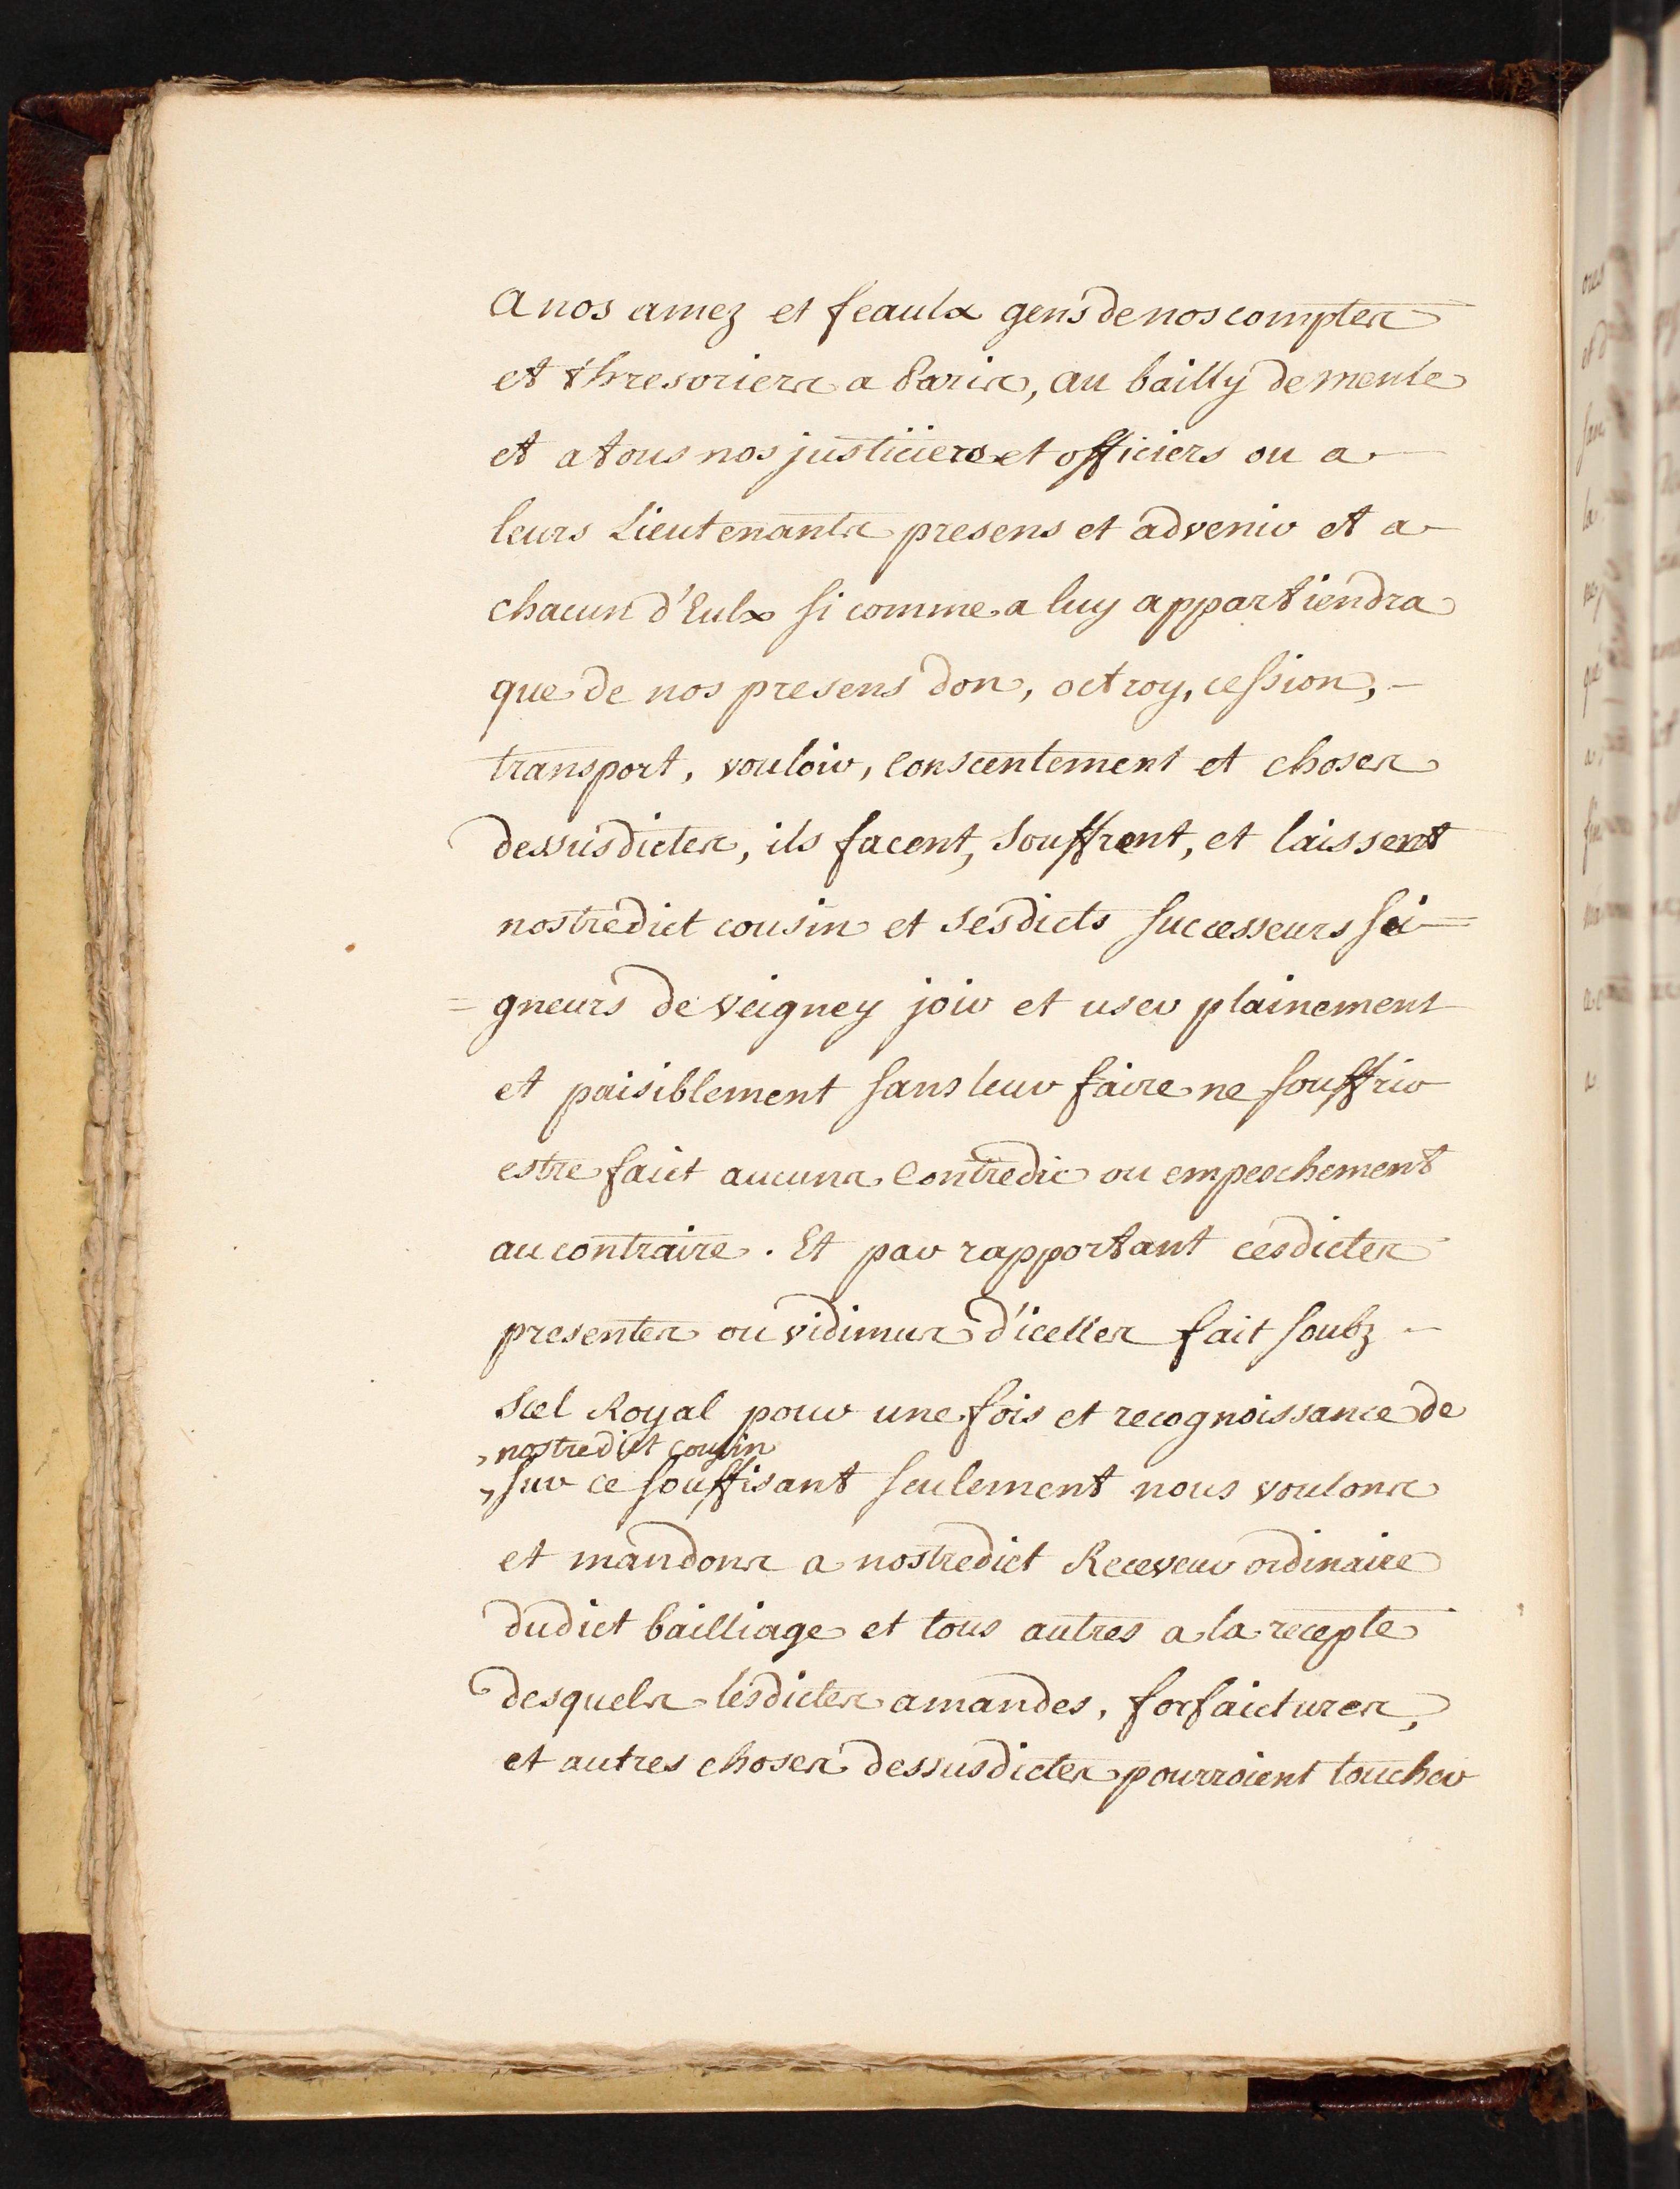 A nos amez et feaulx gens de nos comptes
et thresoriers a Paris, au bailly de Mente
et a tous nos justiciers et officiers ou a
leurs Lieutenants presens et advenir et a
chacun d'Eulx si comme a luy appartiendra
que de nos presens don, octroy, cession, -
transport, vouloir, consentement et choses
dessusdictes, ils facent, souffrent, et laissent
nostredict cousin et sesdicts successeurs sei=
=gneurs de Veigney joir et user plainement
et paisiblement sans leur faire ne souffrir
estre faict aucuns contredic ou empeschement
au contraire. Et par rapportant cesdictes
presentes ou vidimus d'icelles fait soubz -
Scel Royal pour une fois et recognoissance de
nostredict cousin
sur ce souffisant seulement nous voulons
et mandons a nostredict Receveur ordinaire
dudict bailliage et tous autres a la recepte
desquels lesdictes amandes, forfaictures,
et autres choses dessusdictes pourroient toucher